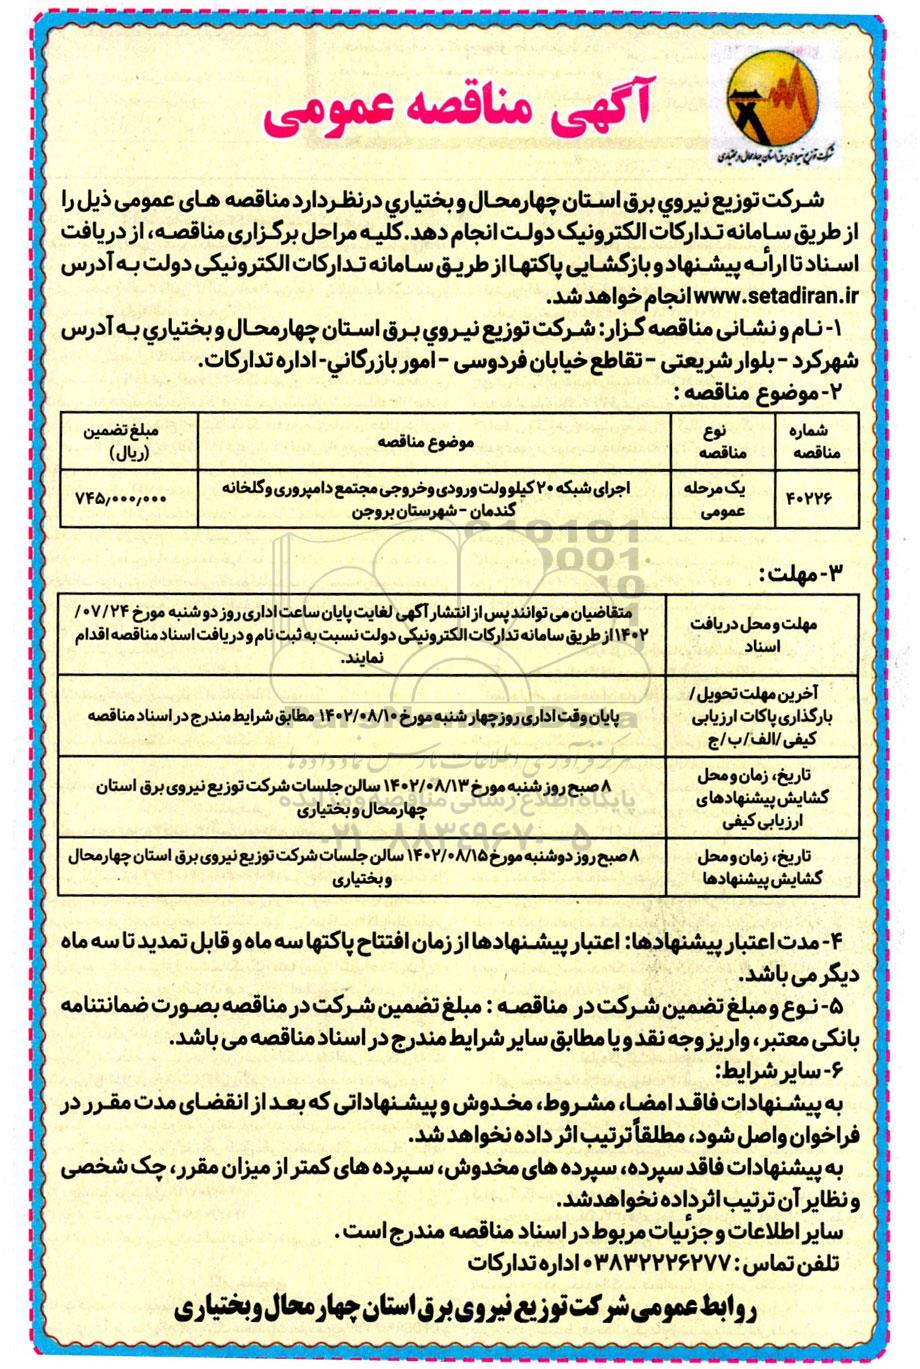 آگهی مناقصه عمومی
شرکت توزیع نیروی برق استان چهارمحال و بختیاری
شرکت توزیع نیروي برق استان چهارمحال و بختیاري درنظر دارد مناقصه های عمومی ذیل را
از طریق سامانه تدارکات الکترونیک دولت انجام دهد. کلیه مراحل برگزاری مناقصه، از دریافت
اسناد تا ارائه پیشنهاد و بازگشایی پاکتها از طریق سامانه تدارکات الکترونیکی دولت به آدرس
www.setadiran.ir انجام خواهد شد.
۱- نام و نشانی مناقصه گزار: شرکت توزیع نیروي برق استان چهارمحال و بختیاري به آدرس
شهرکرد – بلوار شریعتی – تقاطع خیابان فردوسی – امور بازرگاني- اداره تدارکات.
۲- موضوع مناقصه :
شماره مناقصه
نوع مناقصه
موضوع مناقصه
مبلغ تضمین (ریال)
۴۰۲۲۶
یک مرحله عمومی
اجرای شبکه ۲۰ کیلو ولت ورودی و خروجی مجتمع دامپروری و گلخانه
گندمان – شهرستان بروجن
۷۴۵٫۰۰۰٫۰۰۰
۳- مهلت :
مهلت و محل دریافت
اسناد
متقاضیان می توانند پس از انتشار آگهی لغایت پایان ساعت اداری روز دوشنبه مورخ ۰۷/۲۴/
۱۴۰۲ از طریق سامانه تدارکات الکترونیکی دولت نسبت به ثبت نام و دریافت اسناد مناقصه اقدام
نمایند.
آخرین مهلت تحویل/
بارگذاری پاکات ارزیابی
کیفی/الف/ب/ج
پایان وقت اداری روز چهار شنبه مورخ ۱۴۰۲/۰۸/۱۰ مطابق شرایط مندرج در اسناد مناقصه
تاریخ، زمان و محل
گشایش پیشنهادهای
ارزیابی کیفی
۸ صبح روز شنبه مورخ ۱۴۰۲/۰۸/۱۳ سالن جلسات شرکت توزیع نیروی برق استان
چهارمحال و بختیاری
تاریخ، زمان و محل
گشایش پیشنهادها
۸ صبح روز دوشنبه مورخ ۱۴۰۲/۰۸/۱۵ سالن جلسات شرکت توزیع نیروی برق استان چهارمحال
و بختیاری
پایگاه اطلاع رسانی مناقصه و مزایده
۰۲۱-۸۸۳۴۹۶۷۰-۵
۴- مدت اعتبار پیشنهادها: اعتبار پیشنهادها از زمان افتتاح پاکتها سه ماه و قابل تمدید تا سه ماه
دیگر می باشد.
۵- نوع و مبلغ تضمین شرکت در مناقصه : مبلغ تضمین شرکت در مناقصه بصورت ضمانتنامه
بانکی معتبر، واریز وجه نقد و یا مطابق سایر شرایط مندرج در اسناد مناقصه می باشد.
۶- سایر شرایط:
به پیشنهادات فاقد امضا، مشروط، مخدوش و پیشنهاداتی که بعد از انقضای مدت مقرر در
فراخوان واصل شود، مطلقاً ترتیب اثر داده نخواهد شد.
به پیشنهادات فاقد سپرده، سپرده های مخدوش، سپرده های کمتر از میزان مقرر، چک شخصی
و نظایر آن ترتیب اثرداده نخواهدشد.
سایر اطلاعات و جزئیات مربوط در اسناد مناقصه مندرج است .
تلفن تماس : ۰۳۸۳۲۲۲۶۲۷۷ اداره تدارکات
روابط عمومی شرکت توزیع نیروی برق استان چهارمحال و بختیاری